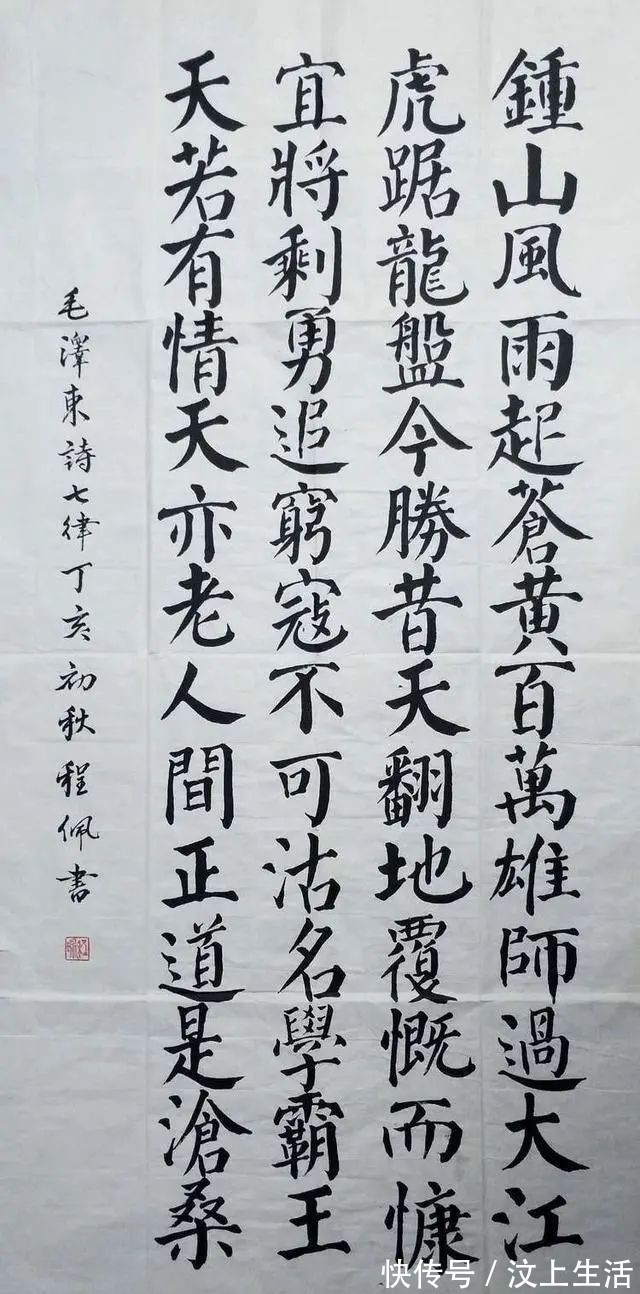 鍾山風雨起蒼黃百萬雄師過大江
虎踞龍盤今勝昔天翻地覆慨而慷
宜將剩勇追窮寇不可沽名學霸王
天若有情天亦老人間正道是滄桑
毛澤東詩七律丁亥初秋程佩書
快传号/汶上生活